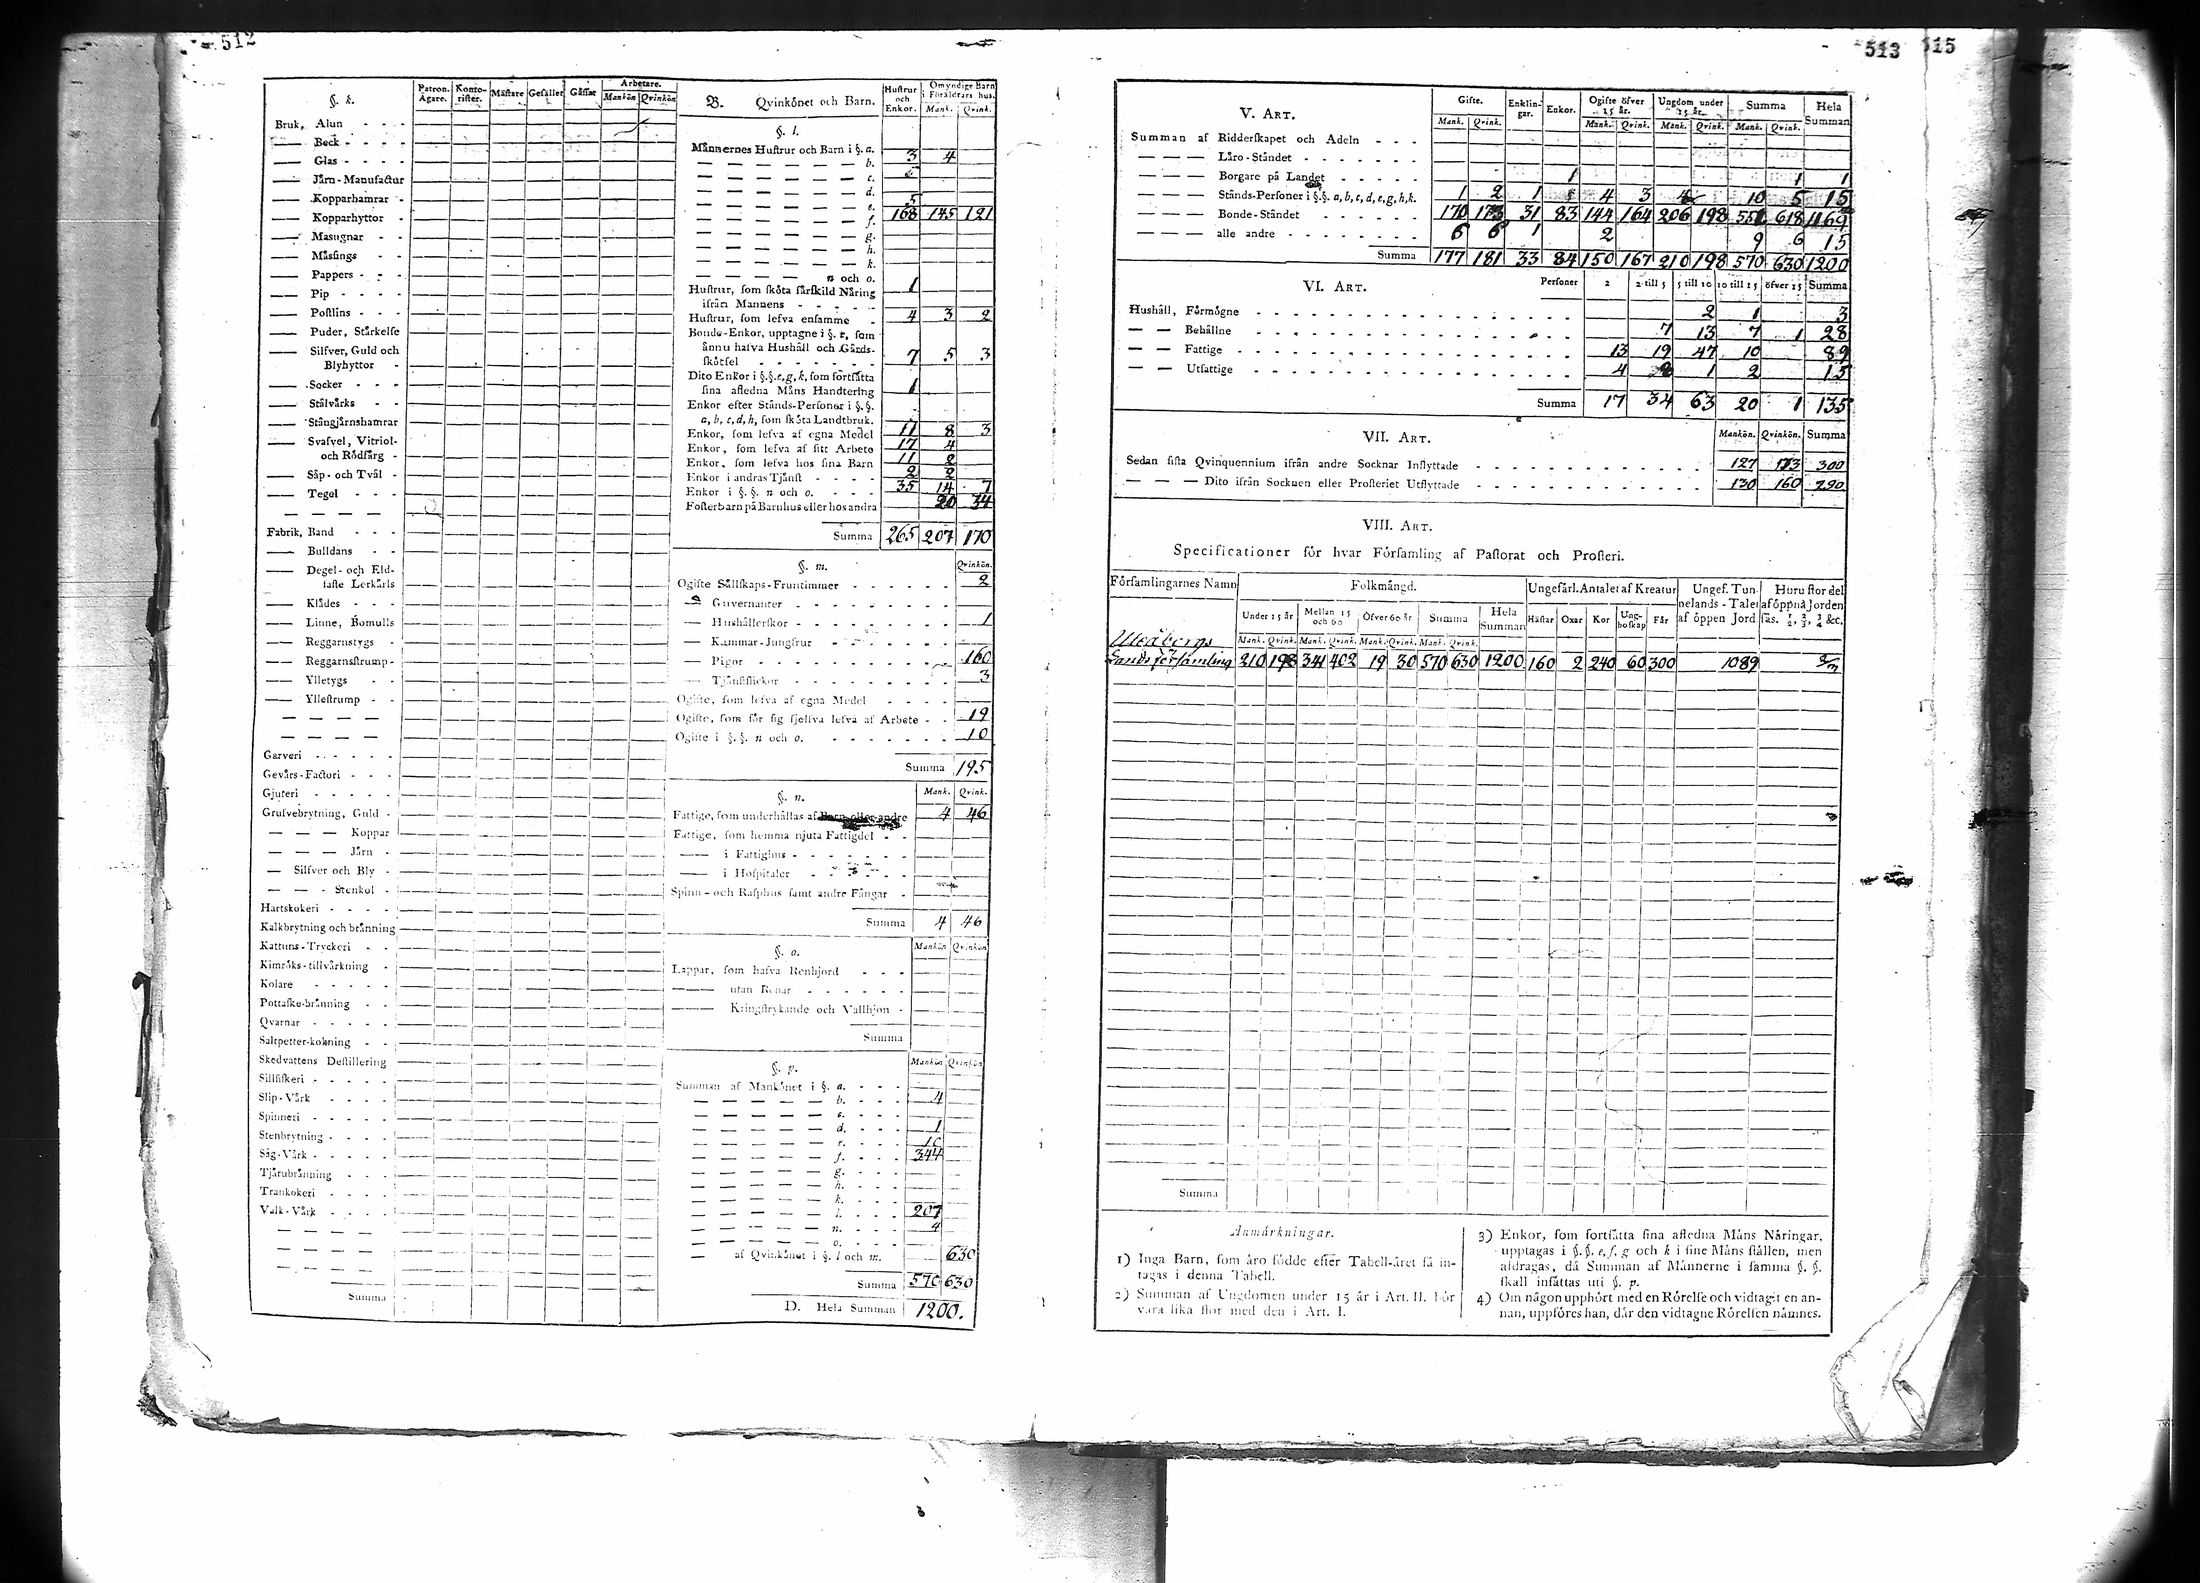 512
§. k. Patron. Ägare. Konto-rister. Mästare Gesäller Gåssar Arbetare. Mankön Qvinkön
Bruk, Alun - - -
— Beck - - - -
— Glas - - - -
— Järn-Manufactur
— Kopparhamrar -
— Kopparhyttor -
— Masugnar - -
— Mässings - -
— Pappers - - -
— Pip - - - -
— Postlins - - -
— Puder, Stärkelse
— Silfver, Guld och
Blyhyttor -
— Socker - - -
— Stålvärks - -
— Stångjärnshamrar
— Svafvel, Vitriol-
och Rödfärg -
— Såp- och Tvål -
— Tegel - - -
— — — —
Fabrik, Band - - -
— Bulldans - -
— Degel- och Eld-
faste Lerkärls
— Klädes - - -
— Linne, Bomulls
— Reggarnstygs -
— Reggarnsstrump-
— Ylletygs - -
— Yllestrump - -
— — — —
— — — —
Garveri - - - - -
Gevärs-Factori - - -
Gjuteri - - - - -
Grufvebrytning, Guld -
— — — Koppar
— — — Järn -
— Silfver och Bly -
— — - Stenkol -
Hartskokeri - - - -
Kalkbrytning och bränning
Kattuns-Tryckeri - -
Kimröks-tillvärkning -
Kolare - - - -
Pottaske-bränning - -
Qvarnar - - - - -
Saltpetter-kokning - -
Skedvattens Destillering
Sillfiskeri - - - - -
Slip-Värk - - - -
Spinneri - - - -
Stenbrytning - - - -
Såg-Värk - - - - -
Tjärubränning - - -
Trankokeri - - - -
Valk-Värk - - - -
— — — —
— — — —
— — — —
Summa
B. Qvinkönet och Barn. Hustrur och Enkor. Omyndige Barn i Föräldrars hus. Mank. Qvink.
§. l.
Männernes Hustrur och Barn i §. a. 3 4
— — — — — b.
— — — — — c.
— — — — — d.
— — — — — e. 5
— — — — — f. 168 145 121
— — — — — g.
— — — — — h.
— — — — — k.
— — — — n och o.
Hustrur, som sköta särskild Näring 1
ifrån Mannens - - - -
Hustrur, som lefva ensamme - 4 3 2
Bonde-Enkor, upptagne i §. e, som
ännu hafva Hushåll och Gårds-
skötsel - - - - - 7 5 3
Dito Enkor i §.§. e, g, k, som fortsätta
sina afledna Mäns Handtering 1
Enkor efter Stånds-Personer i §.§.
a, b, c, d, h, som sköta Landtbruk.
Enkor, som lefva af egna Medel 11 8 3
Enkor, som lefva af sitt Arbete 17 4
Enkor, som lefva hos sina Barn 11 2
Enkor i andras Tjänst - - - - 2 2
Enkor i §.§. n och o. - - - 35 14 7
Fosterbarn på Barnhus eller hos andra 20 34
Summa 265 207 170
§. m. Qvinkön.
Ogifte Sällskaps-Fruntimmer - - - - - - 2
— Guvernanter - - - - - - - -
— Hushållerskor - - - - - - - 1
— Kammar-Jungfrur - - - - - -
— Pigor - - - - - - - - - 160
— Tjänstflickor - - - - - - - - 3
Ogifte, som lefva af egna Medel - - - -
Ogifte, som för sig sjelfva lefva af Arbete - - 19
Ogifte i §.§. n och o. - - - - - - - 10
Summa 195
§. n. Mank. Qvink.
Fattige, som underhållas af Barn eller andre 4 46
Fattige, som hemma njuta Fattigdel - -
— i Fattighus - - - - - -
— i Hospitaler - - - - -
Spinn- och Rasphus samt andre Fångar -
Summa 4 46
§. o. Mankön Qvinkön
Lappar, som hafva Renhjord - - -
— utan Renar - - - - - -
— Kringstrykande och Vallhjon -
Summa
§. p. Mankön Qvinkön
Summan af Mankönet i §. a. - - -
— — — — — b. - - - 4
— — — — — c. - - -
— — — — — d. - - - 1
— — — — — e. - - - 10
— — — — — f. - - - 344
— — — — — g. - - -
— — — — — h. - - -
— — — — — k. - - -
— — — — — l. - - - 207
— — — — — n. - - - 4
— — — — — o. - - -
— af Qvinkönet i §. l och m. 630
Summa 570 630
D. Hela Summan 1200.
513 515
V. ART. Gifte. Enklin-gar. Enkor. Ogifte öfver 15 år. Ungdom under 15 år. Summa Hela Summan
Mank. Qvink. Mank. Qvink. Mank. Qvink. Mank. Qvink.
Summan af Ridderskapet och Adeln - - -
— — — Läro-Ståndet - - - - - - -
— — — Borgare på Landet - - - - - 1 1 1
— — — Stånds-Personer i §.§. a, b, c, d, e, g, h, k. 1 2 1 4 3 4 10 5 15
— — — Bonde-Ståndet - - - - - - 170 173 31 83 144 164 206 198 551 618 1169
— — — alle andre - - - - - - - - 6 6 1 2 9 6 15
Summa 177 181 33 84 150 167 210 198 570 630 1200
VI. ART. Personer 2 2 till 5 5 till 10 10 till 15 öfver 15 Summa
Hushåll, Förmögne - - - - - - 2 1 3
— — Behållne - - - - - - 7 13 7 1 28
— — Fattige - - - - - - 13 19 47 10 89
— — Utfattige - - - - - - 4 8 1 2 15
Summa 17 34 63 20 1 135
VII. ART. Mankön. Qvinkön. Summa
Sedan sista Qvinquennium ifrån andre Socknar Inflyttade - - - - 127 173 300
— — — Dito ifrån Socknen eller Prosteriet Utflyttade - - - - 130 160 290
VIII. ART.
Specificationer för hvar Församling af Pastorat och Prosteri.
Församlingarnes Namn Folkmängd. Ungefärl. Antalet af Kreatur Ungef. Tun-nelands-Talet af öppen Jord Huru stor del af öppna Jorden sås. 1/2, 2/3, 3/4 &c.
Under 15 år Mellan 15 och 60 Öfver 60 år Summa Hela Summan Hästar Oxar Kor Ung-boskap Får
Mank. Qvink. Mank. Qvink. Mank. Qvink. Mank. Qvink.
Uleåborgs
Landsförsamling 210 198 341 402 19 30 570 630 1200 160 2 240 60 300 1089 2/3
Summa
Anmärkningar.
1) Inga Barn, som äro födde efter Tabell-året få in-
tagas i denna Tabell.
2) Summan af Ungdomen under 15 år i Art. II. bör
vara lika stor med den i Art. I.
3) Enkor, som fortsätta sina afledna Mäns Näringar,
upptagas i §.§. e, f, g och k i sine Mäns ställen, men
afdragas, då Summan af Männerne i samma §. §.
skall insättas uti §. p.
4) Om någon upphört med en Rörelse och vidtagit en an-
nan, uppföres han, där den vidtagne Rörelsen nämnes.